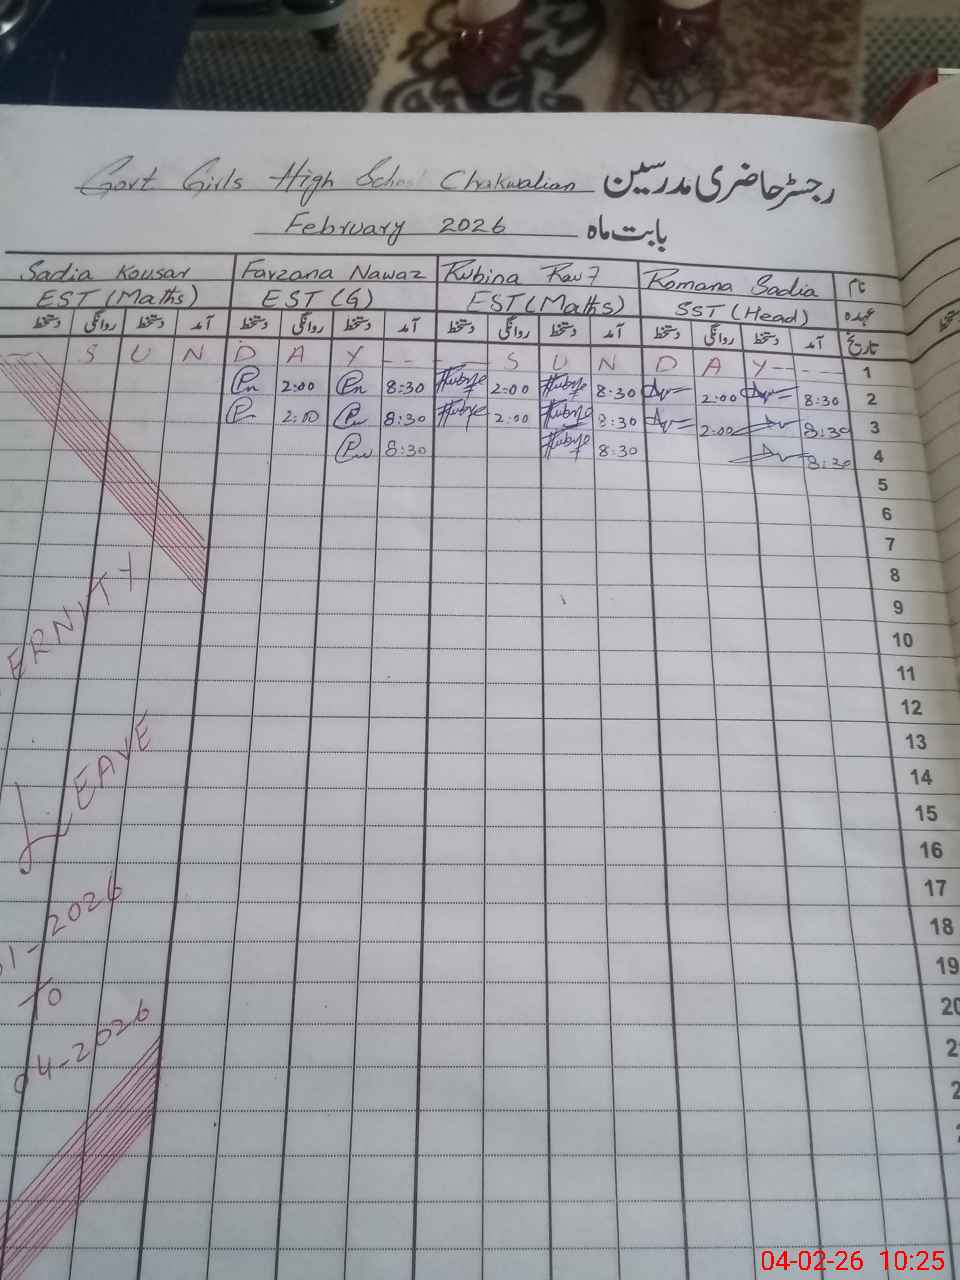 Govt Girls High School Chakwalian رجسٹر حاضری مدرسین
February 2026 بابت ماہ
Sadia Kousar Farzana Nawaz Rubina Rauf Romana Sadia نام
EST (Maths) EST (G) EST (Maths) SST (Head) عہدہ
دستخط روانگی دستخط آمد دستخط روانگی دستخط آمد دستخط روانگی دستخط آمد دستخط روانگی دستخط آمد تاریخ
S U N D A Y - - - - - S U N D A Y - - - - 1
2:00 8:30 2:00 8:30 2:00 8:30 2
2:00 8:30 2:00 8:30 2:00 8:30 3
8:30 8:30 8:30 4
5
6
7
8
9
10
11
12
13
14
15
16
17
18
19
20
ERNITY
LEAVE
1-2026
To
04-2026
04-02-26 10:25